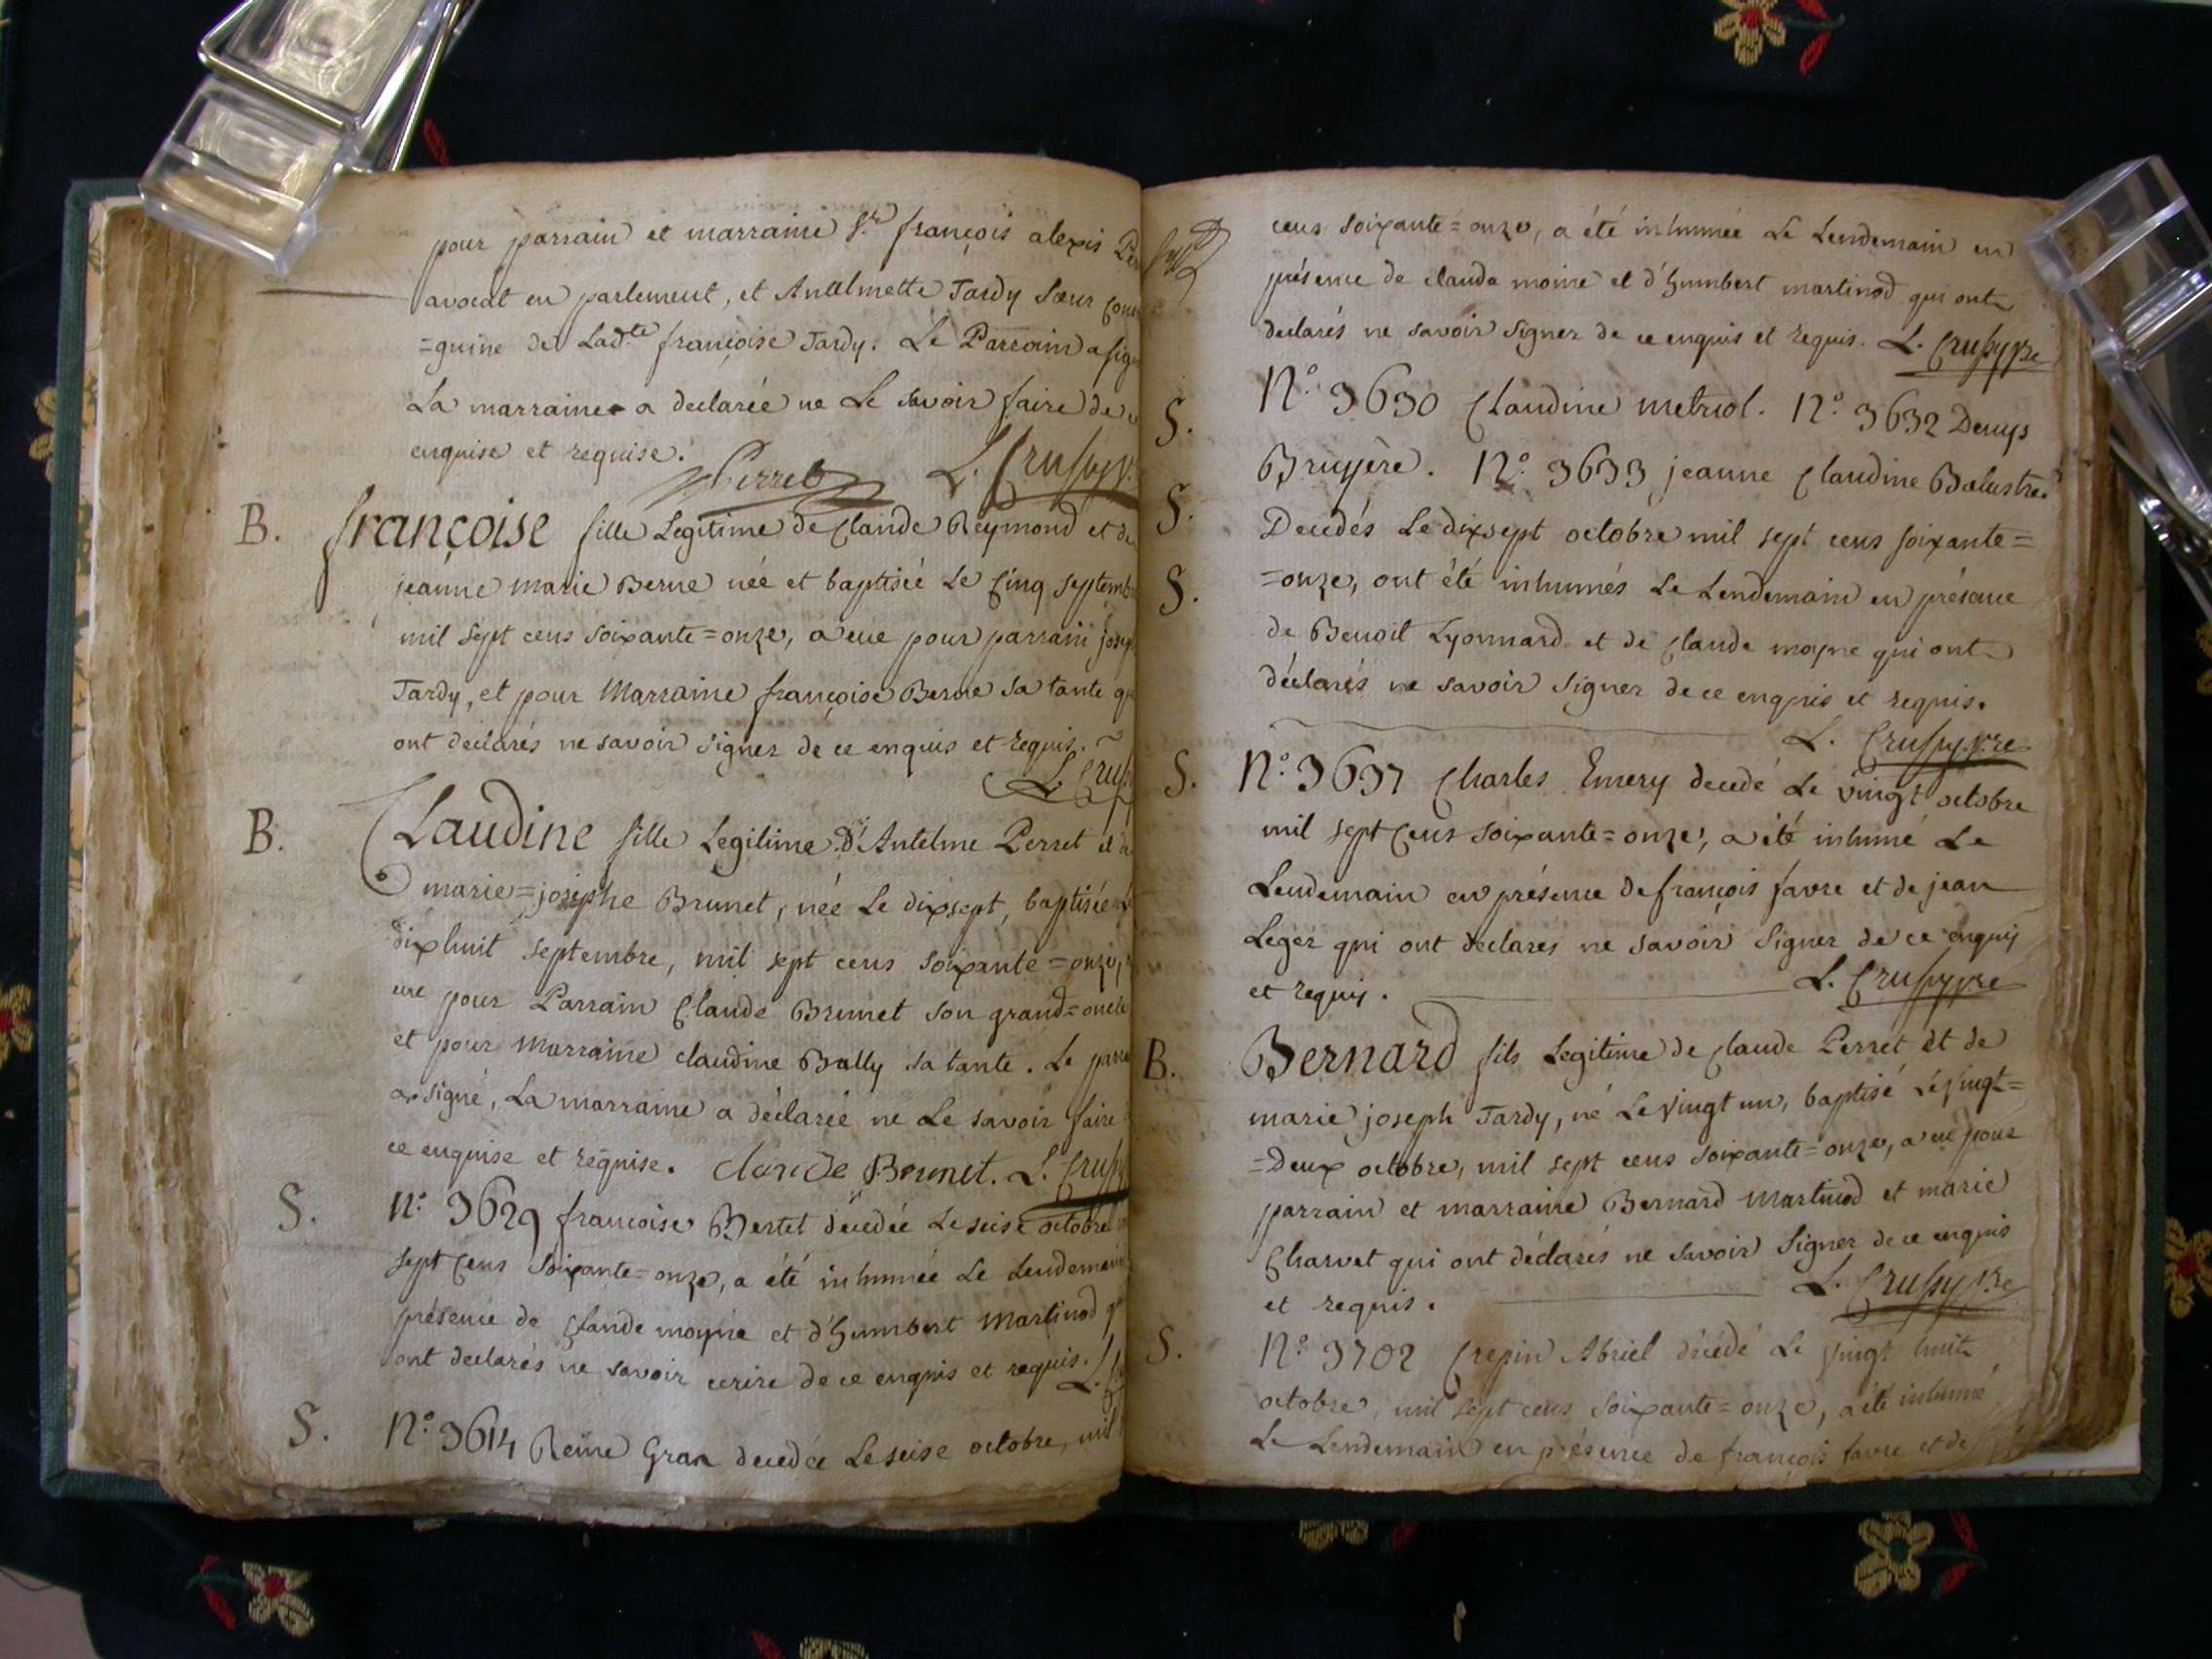 pour parrain et marraine Sr. françois alexis
avocat en parlement, et Antelmette Tardy Sœur
=guine de Ladte françoise Tardy. Le Parrain a
La marraine a declarée ne Le savoir faire de
enquise et requise. Perret L. Crussy
B. françoise fille Legitime de Claude Reymond et de
jeanne marie Berne née et baptisée Le Cinq Septemb
mil sept cens soixante=onze, a eue pour parrain
Tardy, et pour Marraine françoise Berne sa tante
ont declarés ne savoir signer de ce enquis et requis.
L. Crus
B. Claudine fille Legitime d'Antelme Perret et
marie=josephe Brunet, née Le dixsept, baptisée
dixhuit septembre, mil sept cens soixante=onze,
eue pour Parrain Claude Brunet son grand=oncle
et pour Marraine claudine Bally sa tante. Le
a signé, La marraine a déclarée ne Le savoir faire
ce enquise et requise. Claude Brunet. L. Crussy
S. N.° 3629 francoise Bertet décedée Le seise octobre
sept cens Soixante=onze, a été inhumée Le Lendemain
présence de Claude moyne et d'humbert Martinod
ont declarés ne savoir ecrire de ce enquis et requis. L.
S. N.° 3614 Reine Gran decedée Le seise octobre, mil
cens soixante=onze, a été inhumée Le Lendemain en
présence de claude moine et d'humbert martinod qui ont
declarés ne savoir signer de ce enquis et requis. L. Crussy pre
S. N.° 3630 Claudine metriol. N.° 3632 Denys
S. Bruyère. N.° 3633 jeanne Claudine Balustre.
Decedés Le dixsept octobre mil sept cens soixante=
S. =onze, ont été inhumés Le Lendemain en présence
de Benoit Lyonnard et de Claude moyne qui ont
déclarés ne savoir signer de ce enquis et requis.
L. Crussy pre
S. N.° 3637 Charles Emery decedé Le vingt octobre
mil sept Cens soixante=onze, a été inhumé Le
Lendemain en présence de françois favre et de jean
Leger qui ont declarés ne savoir signer de ce enquis
et requis. L. Crussy pre
B. Bernard fils Legitime de Claude Perret et de
marie joseph Tardy, né Le vingt un, baptisé Le vingt=
=Deux octobre, mil sept cens soixante=onze, a eu pour
parrain et marraine Bernard Martinod et marie
Charvet qui ont déclarés ne savoir signer de ce enquis
et requis. L. Crussy pre
S. N.° 3702 Crepin Abriel décédé Le vingt huit
octobre, mil sept cens soixante=onze, a été inhumé
Le Lendemain en présence de françois favre et de